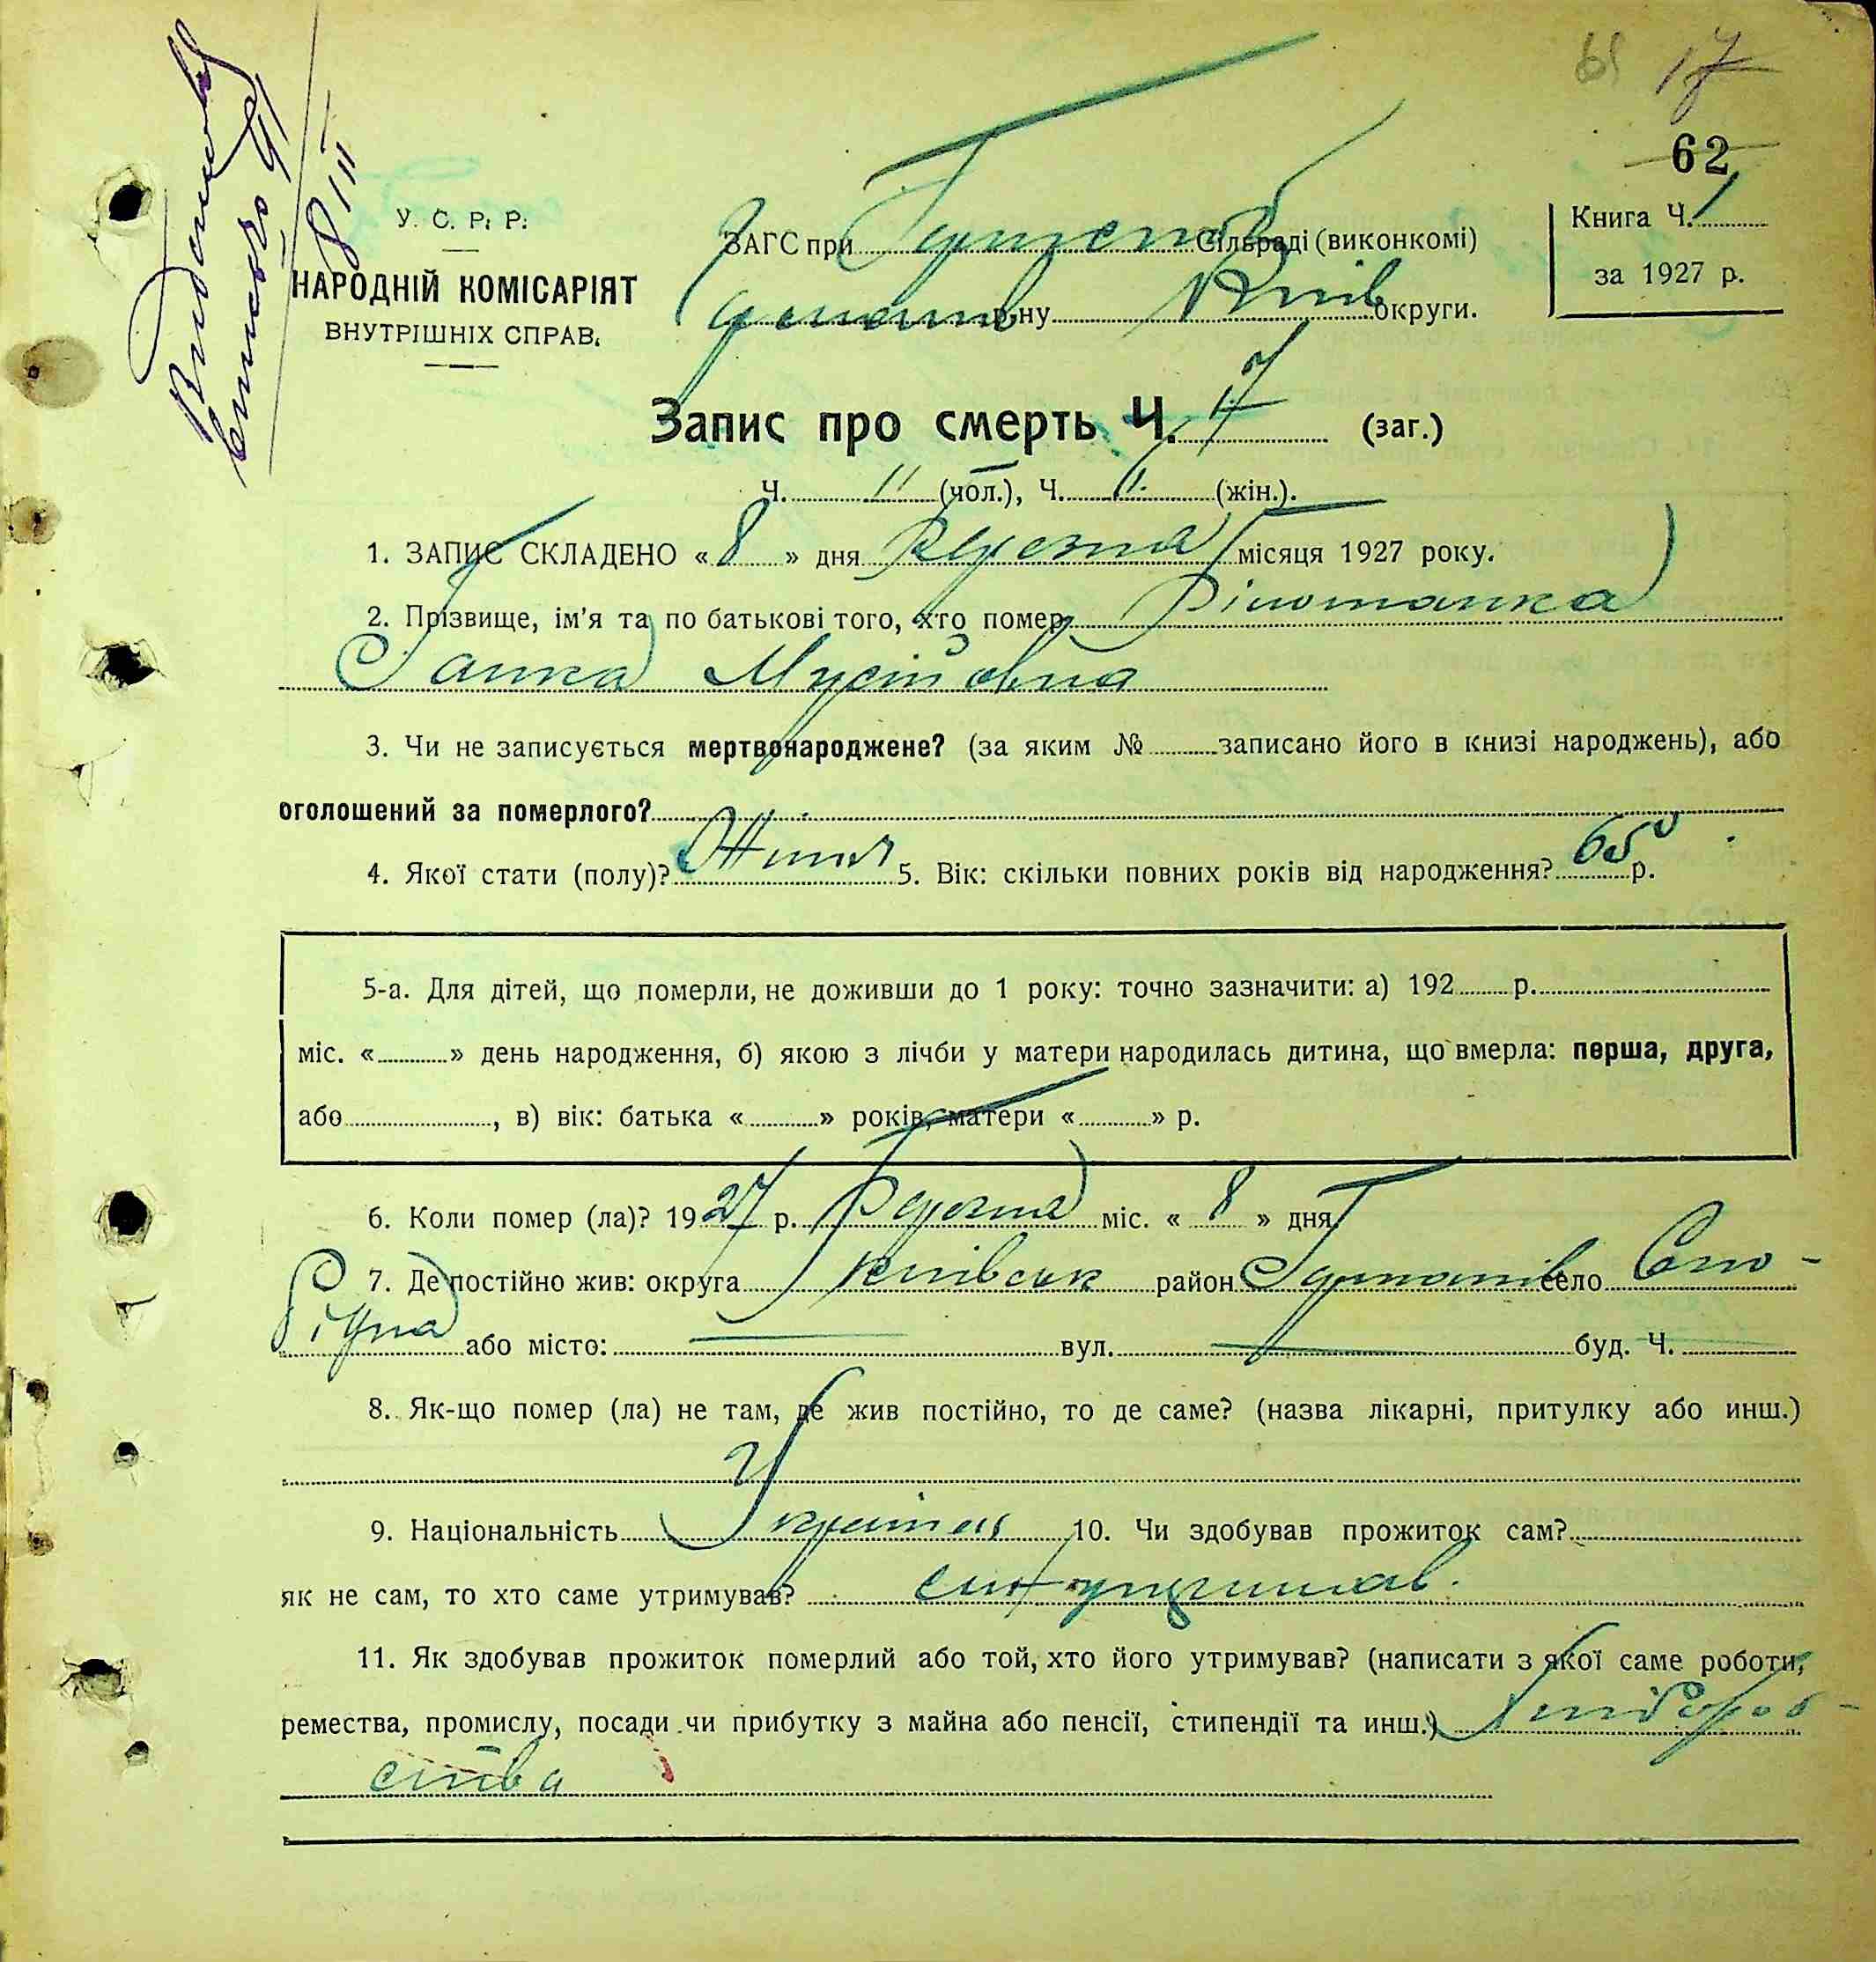 65 17
62
Книга Ч. 1
за 1927 р.
У. С. Р. Р.
НАРОДНІЙ КОМІСАРІЯТ
ВНУТРІШНІХ СПРАВ.
8/III
ЗАГС при Сільраді (виконкомі)
р-ну Київ округи.
Запис про смерть Ч. 17 (заг.)
Ч. 11 (чол.), Ч. (жін.).
1. ЗАПИС СКЛАДЕНО « 8 » дня Березня місяця 1927 року.
2. Прізвище, ім'я та по батькові того, хто помер
Ганна Мусіївна
3. Чи не записується мертвонароджене? (за яким № записано його в книзі народжень), або
оголошений за померлого?
4. Якої стати (полу)? 5. Вік: скільки повних років від народження? 65 р.
5-а. Для дітей, що померли, не доживши до 1 року: точно зазначити: а) 192 р.
міс. « » день народження, б) якою з лічби у матери народилась дитина, що вмерла: перша, друга,
або , в) вік: батька « » років, матери « » р.
6. Коли помер (ла)? 1927 р. Березня міс. « 8 » дня
7. Де постійно жив: округа Київськ район село
або місто: — вул. — буд. Ч.
8. Як-що помер (ла) не там, де жив постійно, то де саме? (назва лікарні, притулку або инш.)
9. Національність 10. Чи здобував прожиток сам?
як не сам, то хто саме утримував? син утримував.
11. Як здобував прожиток померлий або той, хто його утримував? (написати з якої саме роботи,
ремества, промислу, посади чи прибутку з майна або пенсії, стипендії та инш.) Хлібороб-
ства